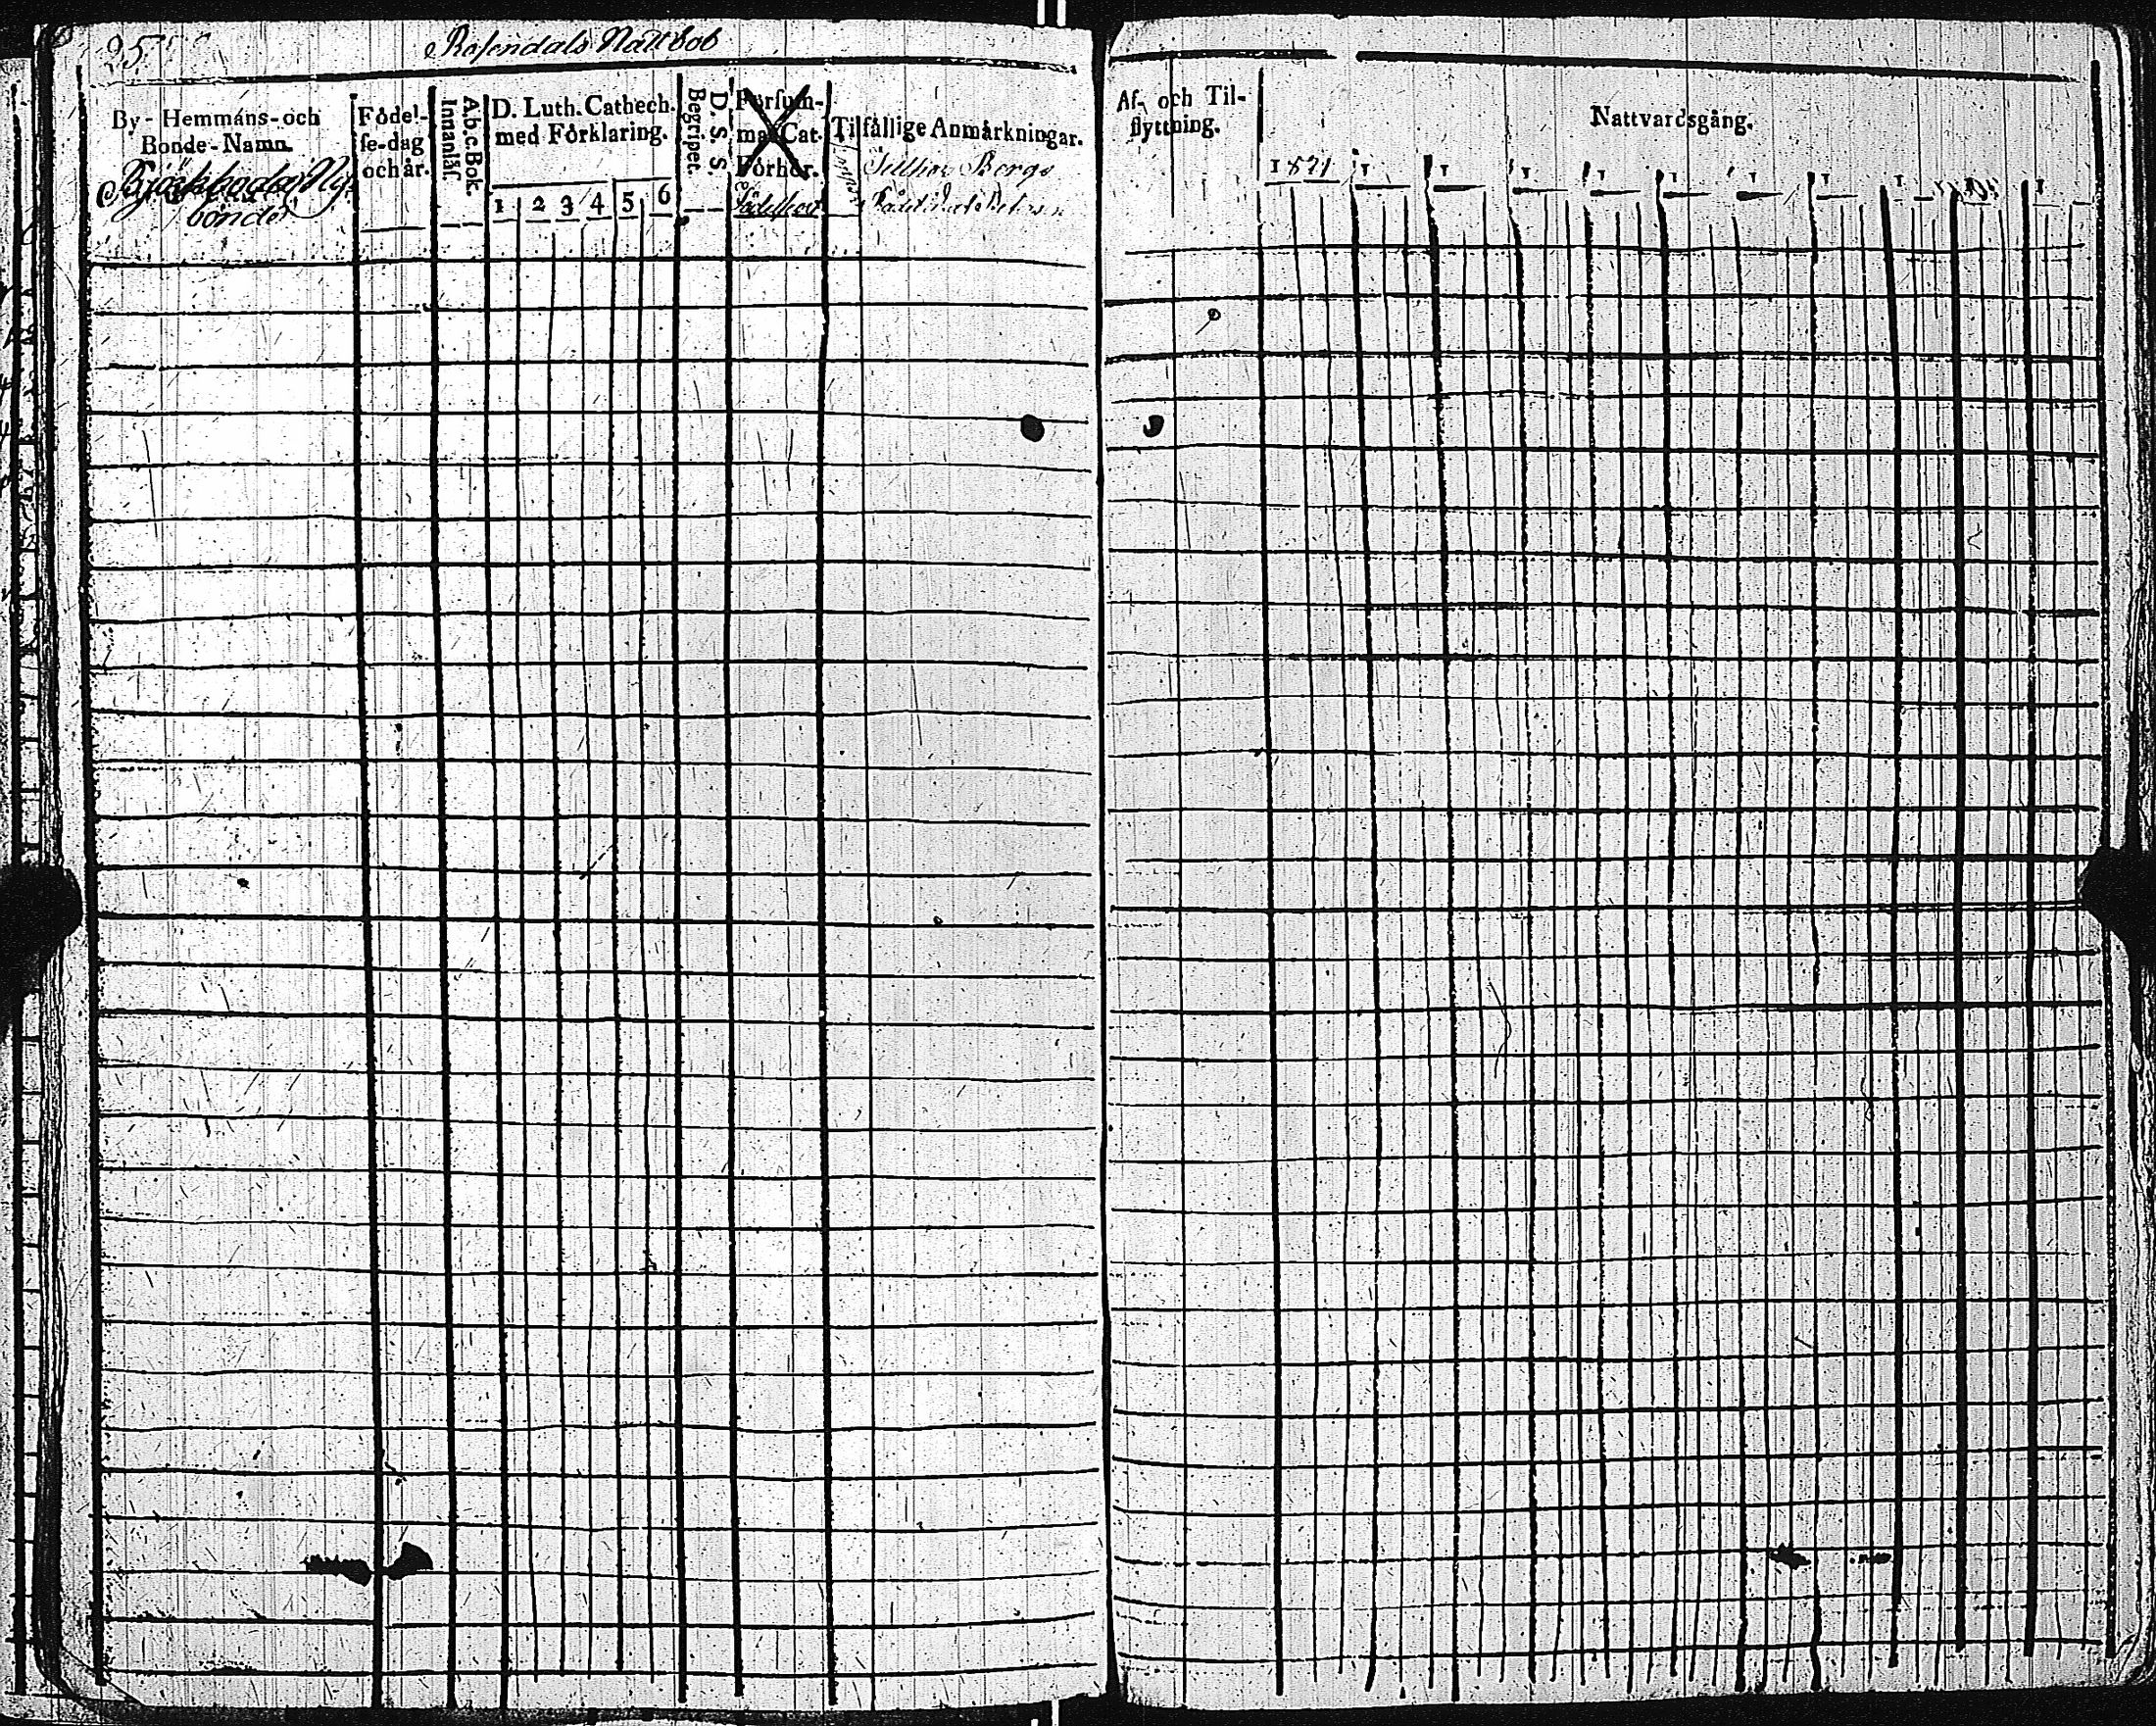 25
Rosendals Nattbob
By- Hemmans- och
Bonde-Namn.
bönder
Födel-
se-dag
och år.
A.b.c.Bok.
Innanläs.
D. Luth. Cathech.
med Förklaring.
1 2 3 4 5 6
D. S. S.
Begripet.
Försum-
ma Cat.
Förhör.
Tilfällige Anmärkningar.
Af- och Til-
flyttning.
Nattvardsgång.
1821 1 1 1 1 1 1 1 1 1